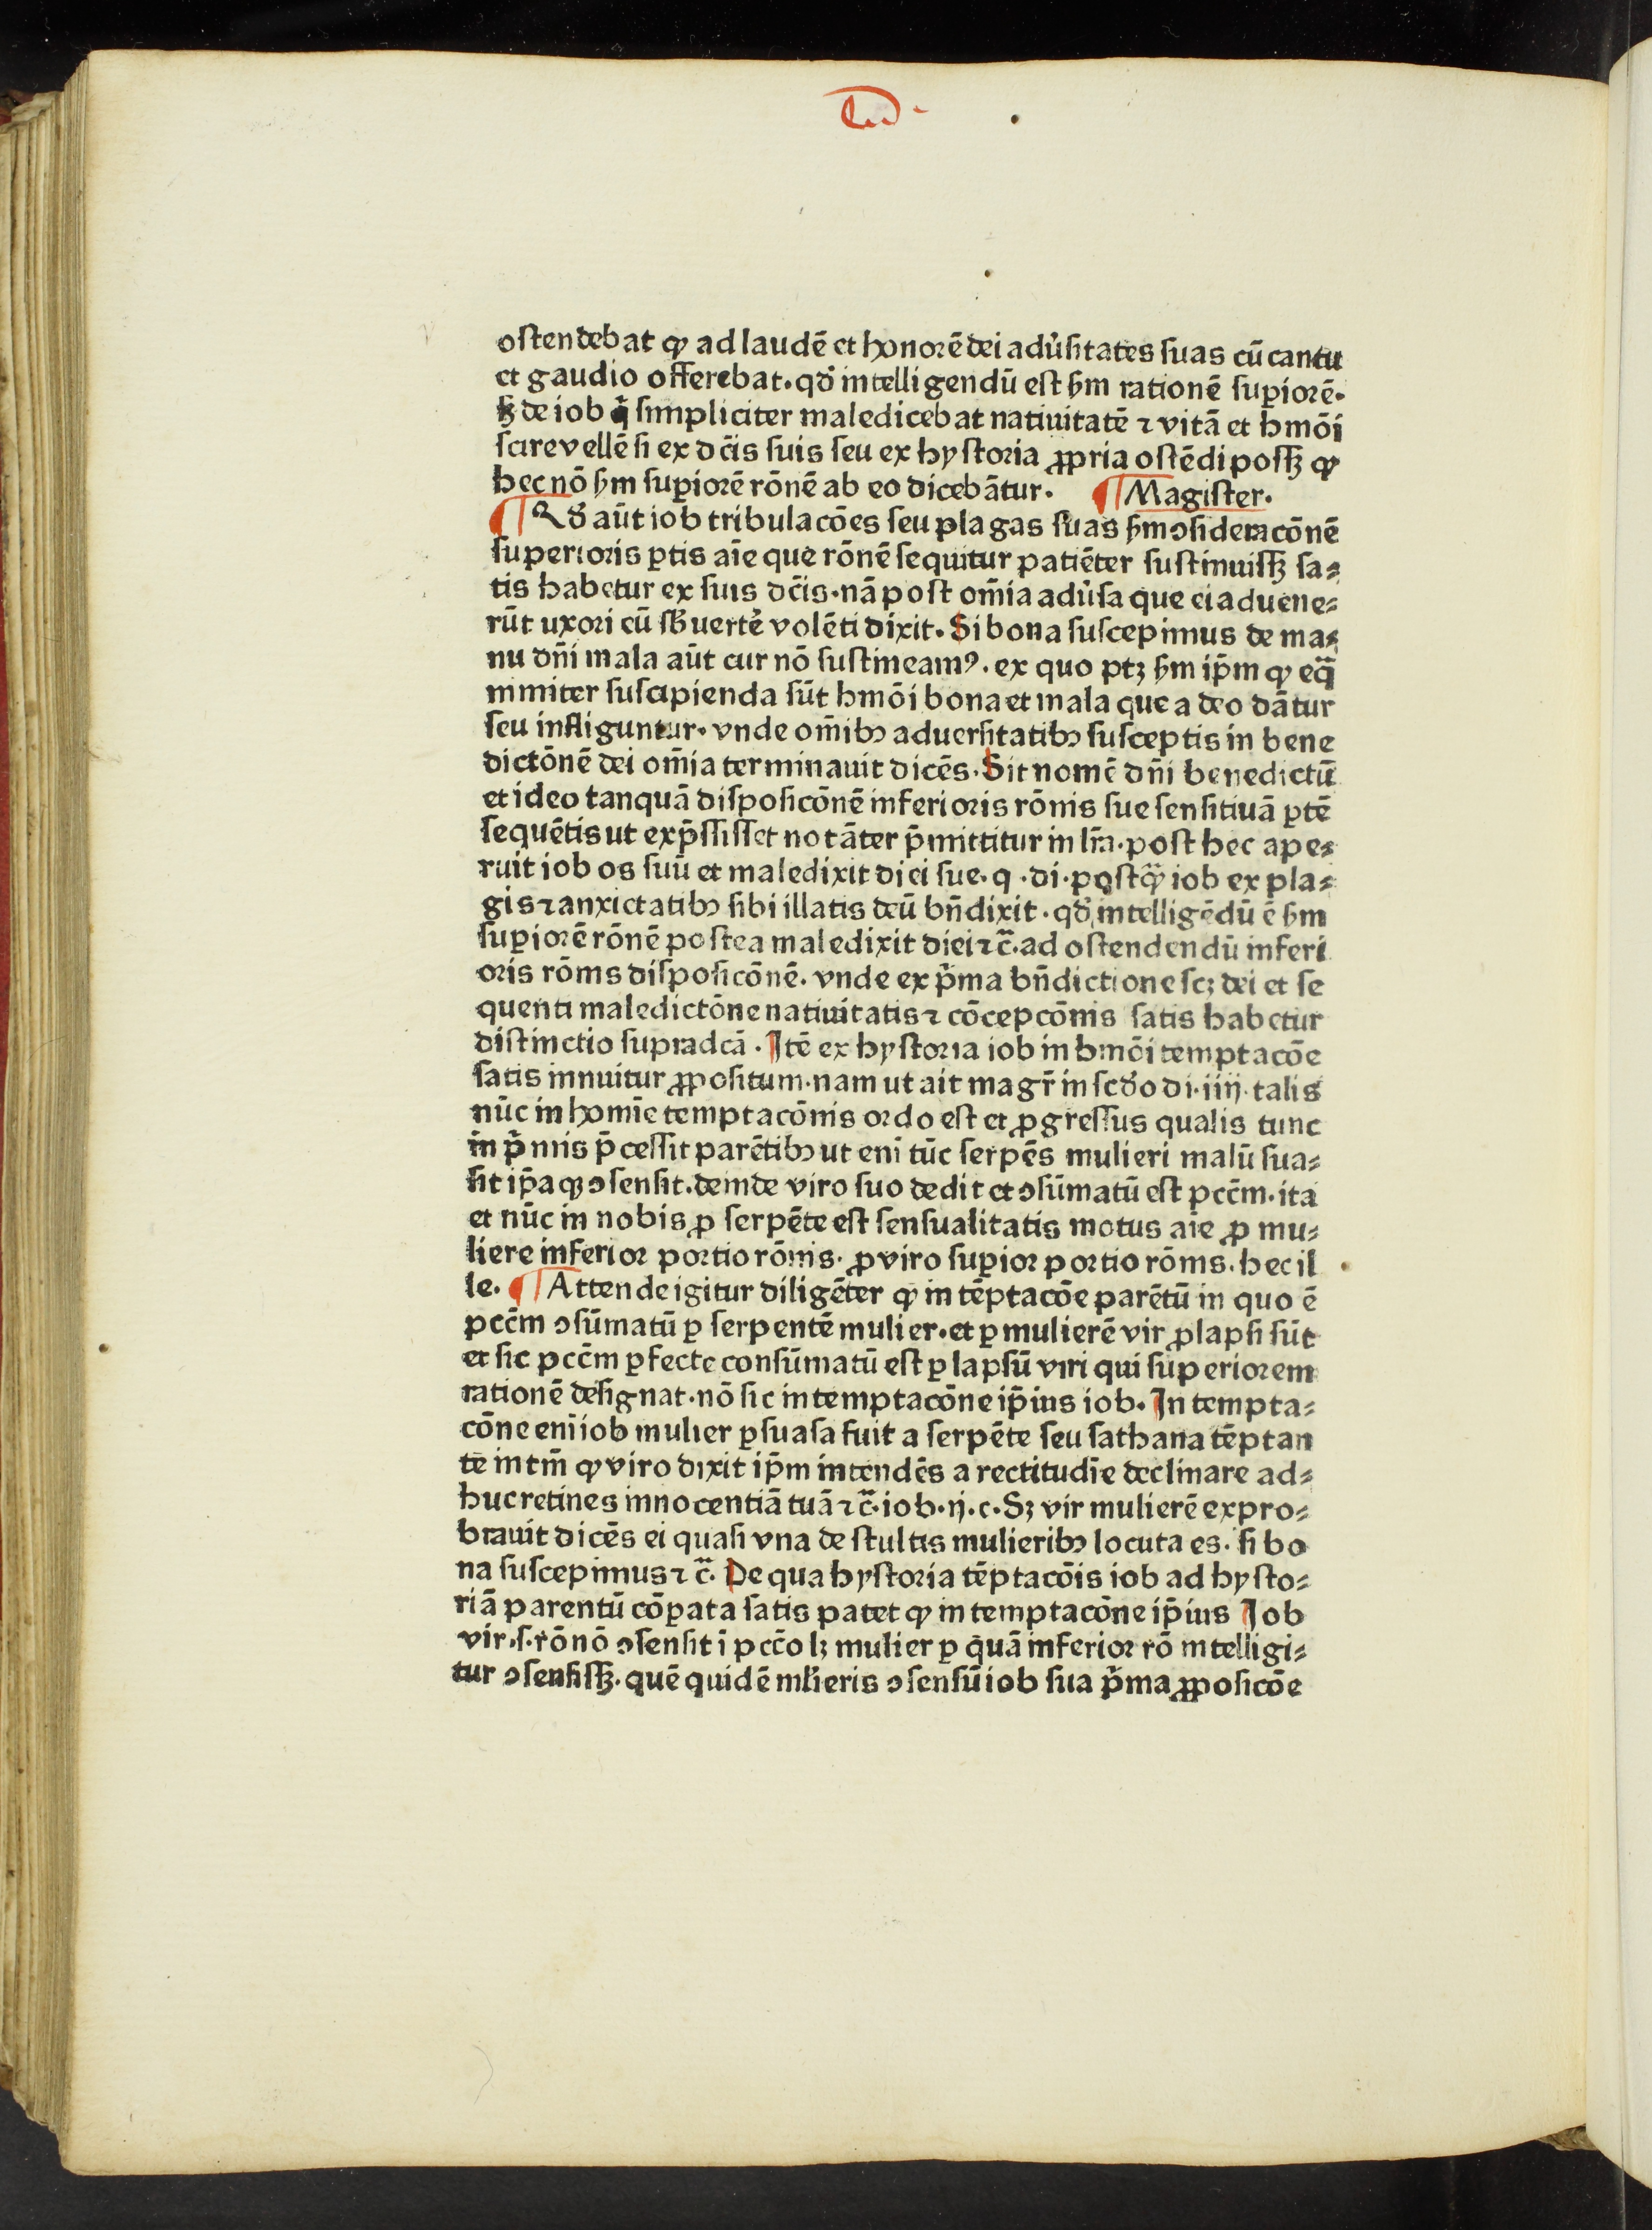 ostendebat ꝙ ad laudē et honorē dei adũsitates suas cū cantu
et gaudio offerebat. qđ intelligendū est ẜm rationē supiorē.
ꝫ de iob q̄ simpliciter maledicebat natiuitatē ⁊ vitā et hmōi
scire vellē si ex dc̄is suis seu ex hystoria ꝓpria ostēdi possꝫ ꝙ
hec nō ẜm suꝑiorē rōnē ab eo dicebātur. ¶ Magister.
¶ Qđ aūt iob tribulacōes seu plagas suas ẜm ↄsideracōnē
superioris ꝑtis aīe que rōnē sequitur patiēter sustinuissꝫ sa⸗
tis habetur ex suis dc̄is. nā post om̄ia adũsa que ei aduene⸗
rūt uxori eū sb̄uertē volēti dixit. Si bona suscepimus de ma⸗
nu dn̄i mala aūt cur nō sustineamꝰ. ex quo ptꝫ ẜm ip̄m ꝙ eq̄
nimiter suscipienda sūt hmōi bona et mala que a deo dātur
seu infliguntur. vnde om̄ibꝫ aduersitatibꝫ susceptis in bene
dictōnē dei om̄ia terminauit dicēs. Sit nomē dn̄i benedictū
et ideo tanquā disposicōnē inferioris rōnis sue sensitiuā ꝑtē
sequētis ut exp̄ssisset notāter p̄mittitur in lr̄a. post hec ape⸗
ruit iob os suū et maledixit diei sue. q. di. postqꝫ iob ex pla⸗
gis ⁊ anxietatibꝫ sibi illatis deū bn̄dixit. qđ intelligēdū ē ẜm
suꝑiorē rōnē postea maledixit diei ⁊c̄. ad ostendendū inferi
oris rōnis disposicōnē. vnde ex p̄ma bn̄dictione scꝫ dei et se
quenti maledictōne natiuitatis ⁊ cōcepcōnis satis habetur
distinctio supradcā. Itē ex hystoria iob in hmōi temptacōe
satis innuitur ꝓpositum. nam ut ait magr̄ in scđo di. iiij. talis
nūc in homīe temptacōnis ordo est et ꝓgressus qualis tunc
in p̄mis p̄cessit parētibꝫ ut enī tūc serpēs mulieri malū sua⸗
sit ip̄aqꝫ ↄsensit. deinde viro suo dedit et ↄsūmatū est pcc̄m. ita
et nūc in nobis ꝓ serpēte est sensualitatis motus aīe ꝓ mu⸗
liere inferior portio rōnis. ꝓ viro suꝑior portio rōnis. hec il
le. ¶ Attende igitur diligēter ꝙ in tēptacōe parētū in quo ē
pcc̄m ↄsūmatū ꝑ serpentē mulier. et ꝑ mulierē vir ꝓlapsi sūt
et sic pcc̄m ꝑfecte consūmatū est ꝑ lapsū viri qui superiorem
rationē designat. nō sic in temptacōne ip̄ius iob. In tempta⸗
cōne enī iob mulier ꝑsuasa fuit a serpēte seu sathana tēptan
te intm̄ ꝙ viro dixit ip̄m intendēs a rectitudīe declinare ad⸗
huc retines innocentiā tuā ⁊c̄. iob. ij. c. Sꝫ vir mulierē expro⸗
brauit dicēs ei quasi vna de stultis mulieribꝫ locuta es. si bo
na suscepimus ⁊c̄. De qua hystoria tēptacōis iob ad hysto⸗
riā parentū cōꝑata satis patet ꝙ in temptacōne ip̄ius Iob
vir .s. rō nō ↄsensit ī pcc̄o lꝫ mulier ꝑ quā inferior rō intelligi⸗
tur ↄsensissꝫ. quē quidē ml̄ieris ↄsensū iob sua p̄ma ꝓposicōe